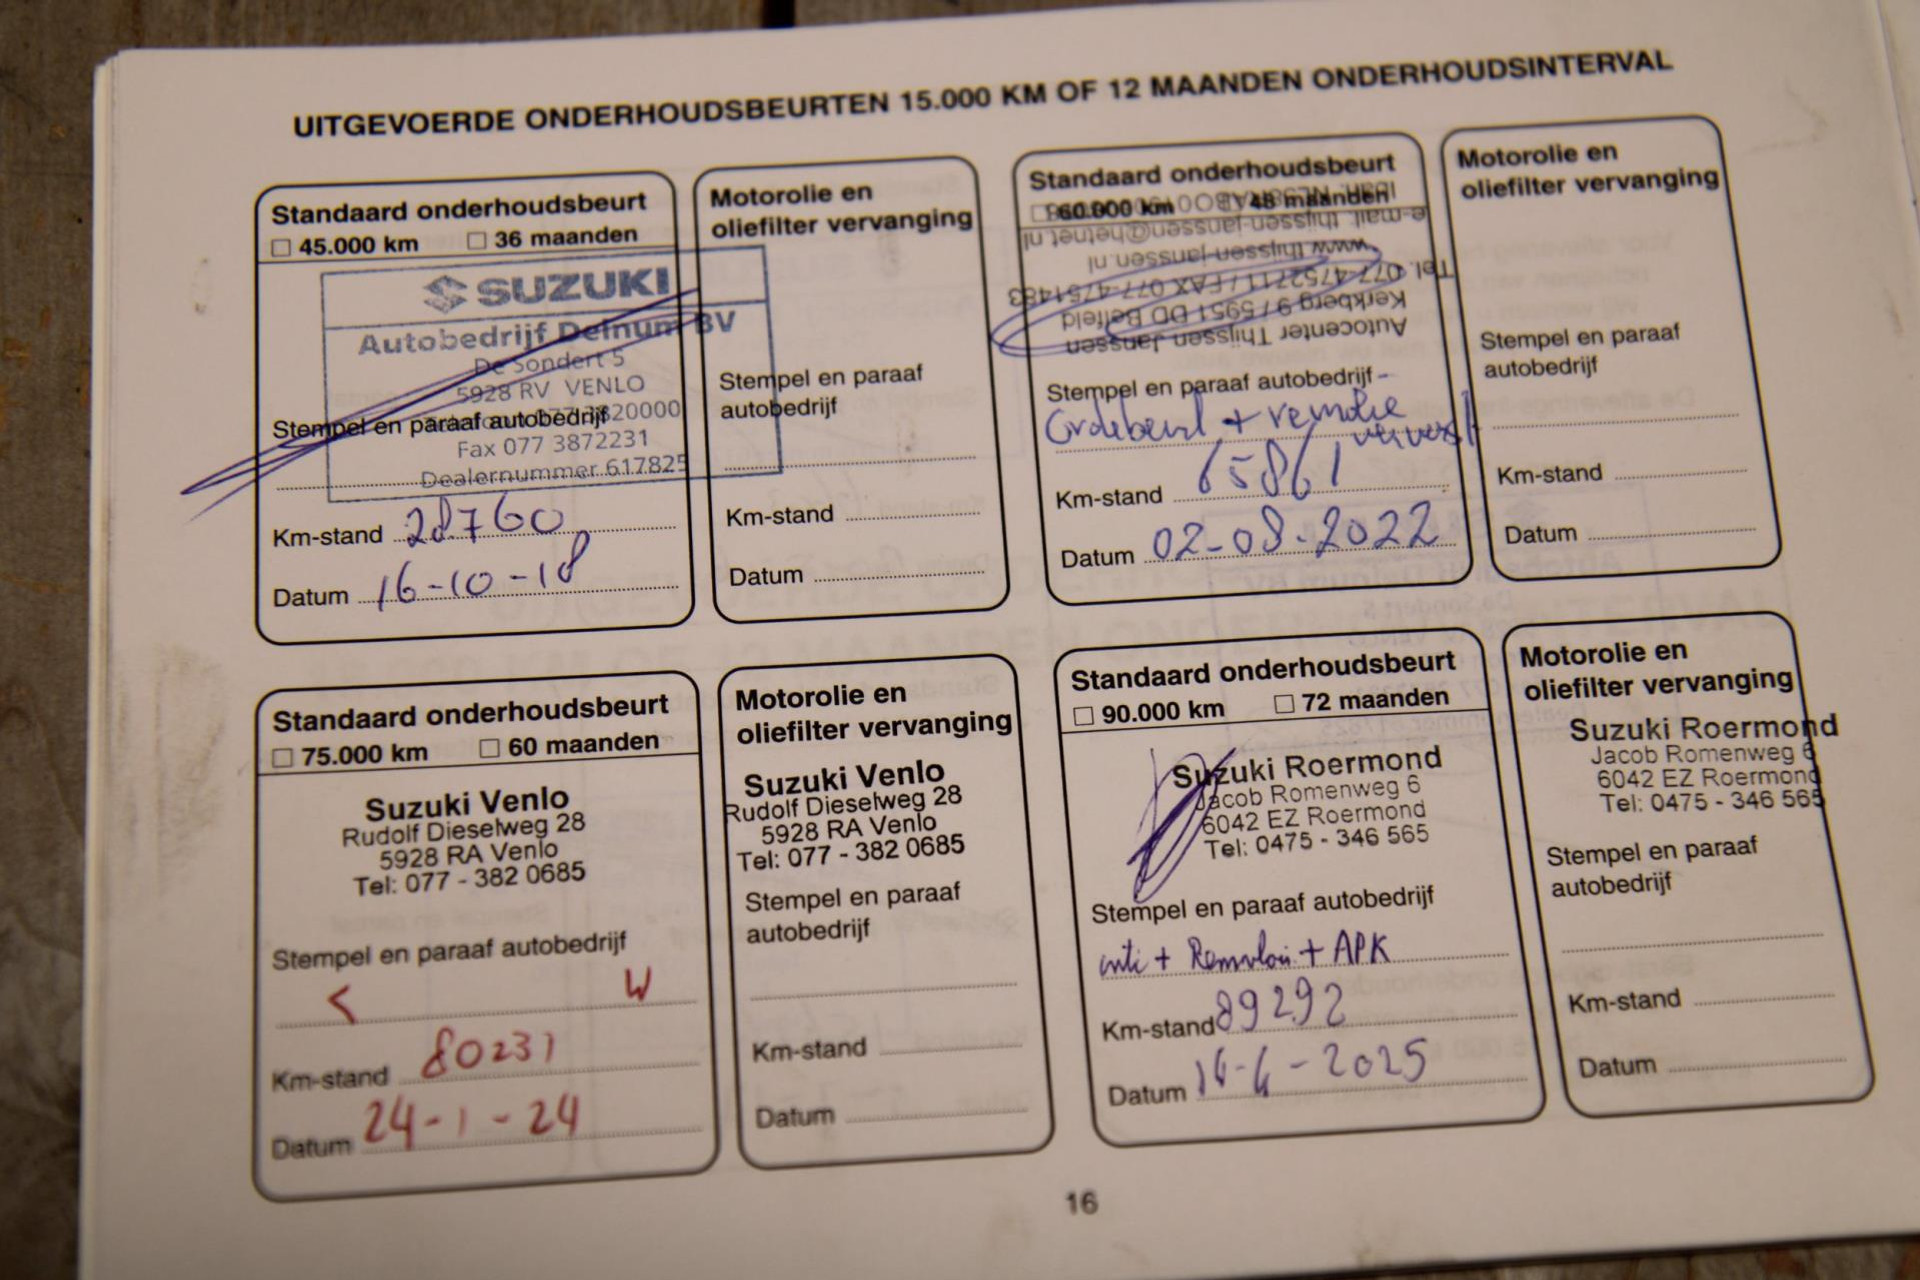 UITGEVOERDE ONDERHOUDSBEURTEN 15.000 KM OF 12 MAANDEN ONDERHOUDSINTERVAL
Standaard onderhoudsbeurt
45.000 km 36 maanden
SUZUKI
Autobedrijf Delnum BV
De Sondert 5
5928 RV VENLO
Stempel en paraaf autobedrijf
3820000
Fax 077 3872231
Dealernummer 617825
Km-stand 28760
Datum 16-10-18
Motorolie en
oliefilter vervanging
Stempel en paraaf
autobedrijf
Km-stand
Datum
Standaard onderhoudsbeurt
60.000 km 48 maanden
Autocenter Thijssen Janssen
Kerkberg 9 / 5951 DD Belfeld
Tel. 077-4752711 / FAX 077-4751483
www.thijssen-janssen.nl
e-mail: thijssen-janssen@hetnet.nl
Stempel en paraaf autobedrijf
+
Km-stand 65861
Datum 02-08-2022
Motorolie en
oliefilter vervanging
Stempel en paraaf
autobedrijf
Km-stand
Datum
Standaard onderhoudsbeurt
75.000 km 60 maanden
Suzuki Venlo
Rudolf Dieselweg 28
5928 RA Venlo
Tel: 077 - 382 0685
Stempel en paraaf autobedrijf
Km-stand 80231
Datum 24-1-24
Motorolie en
oliefilter vervanging
Suzuki Venlo
Rudolf Dieselweg 28
5928 RA Venlo
Tel: 077 - 382 0685
Stempel en paraaf
autobedrijf
Km-stand
Datum
Standaard onderhoudsbeurt
90.000 km 72 maanden
Suzuki Roermond
Jacob Romenweg 6
6042 EZ Roermond
Tel: 0475 - 346 565
Stempel en paraaf autobedrijf
+ APK
Km-stand 89292
Datum
Motorolie en
oliefilter vervanging
Suzuki Roermond
Jacob Romenweg 6
6042 EZ Roermond
Tel: 0475 - 346 565
Stempel en paraaf
autobedrijf
Km-stand
Datum
16